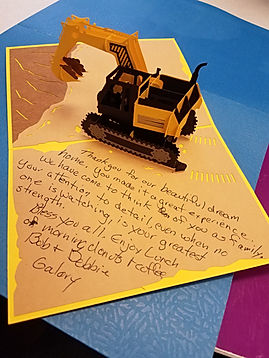 Thank you for our beautiful dream
home, you made it a great experience
We have come to think of you as family.
your attention to detail, even when no
one is watching, is your greatest
strength.
Bless you all. Enjoy Lunch
or morning donuts & coffee
Bob & Debbie